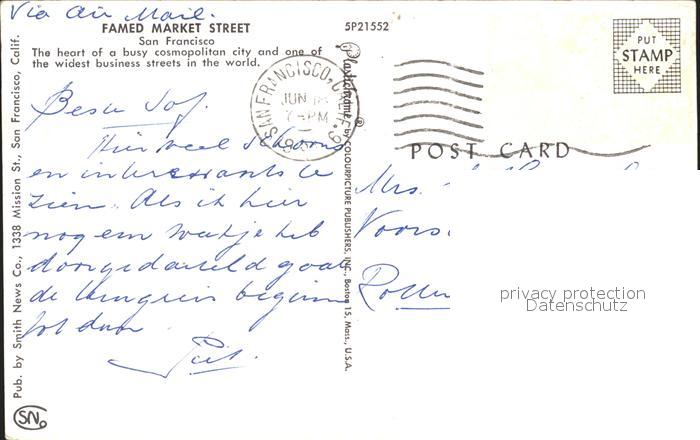 Via Air Mail.
FAMED MARKET STREET
San Francisco
The heart of a busy cosmopolitan city and one of
the widest business streets in the world.
5P21552
PUT
STAMP
HERE
SAN FRANCISCO, CALIF.
JUN
7-PM
POST CARD
Hier veel schoons
en interessants te
zien. Als ik hier
nog een
de beginn
tot daar
Piet.
Mrs.
Voors
Rotter
privacy protection
Datenschutz
Pub. by Smith News Co., 1338 Mission St., San Francisco, Calif.
Plastichrome ® by COLOURPICTURE PUBLISHERS, INC., Boston 15, Mass., U.S.A.
SN